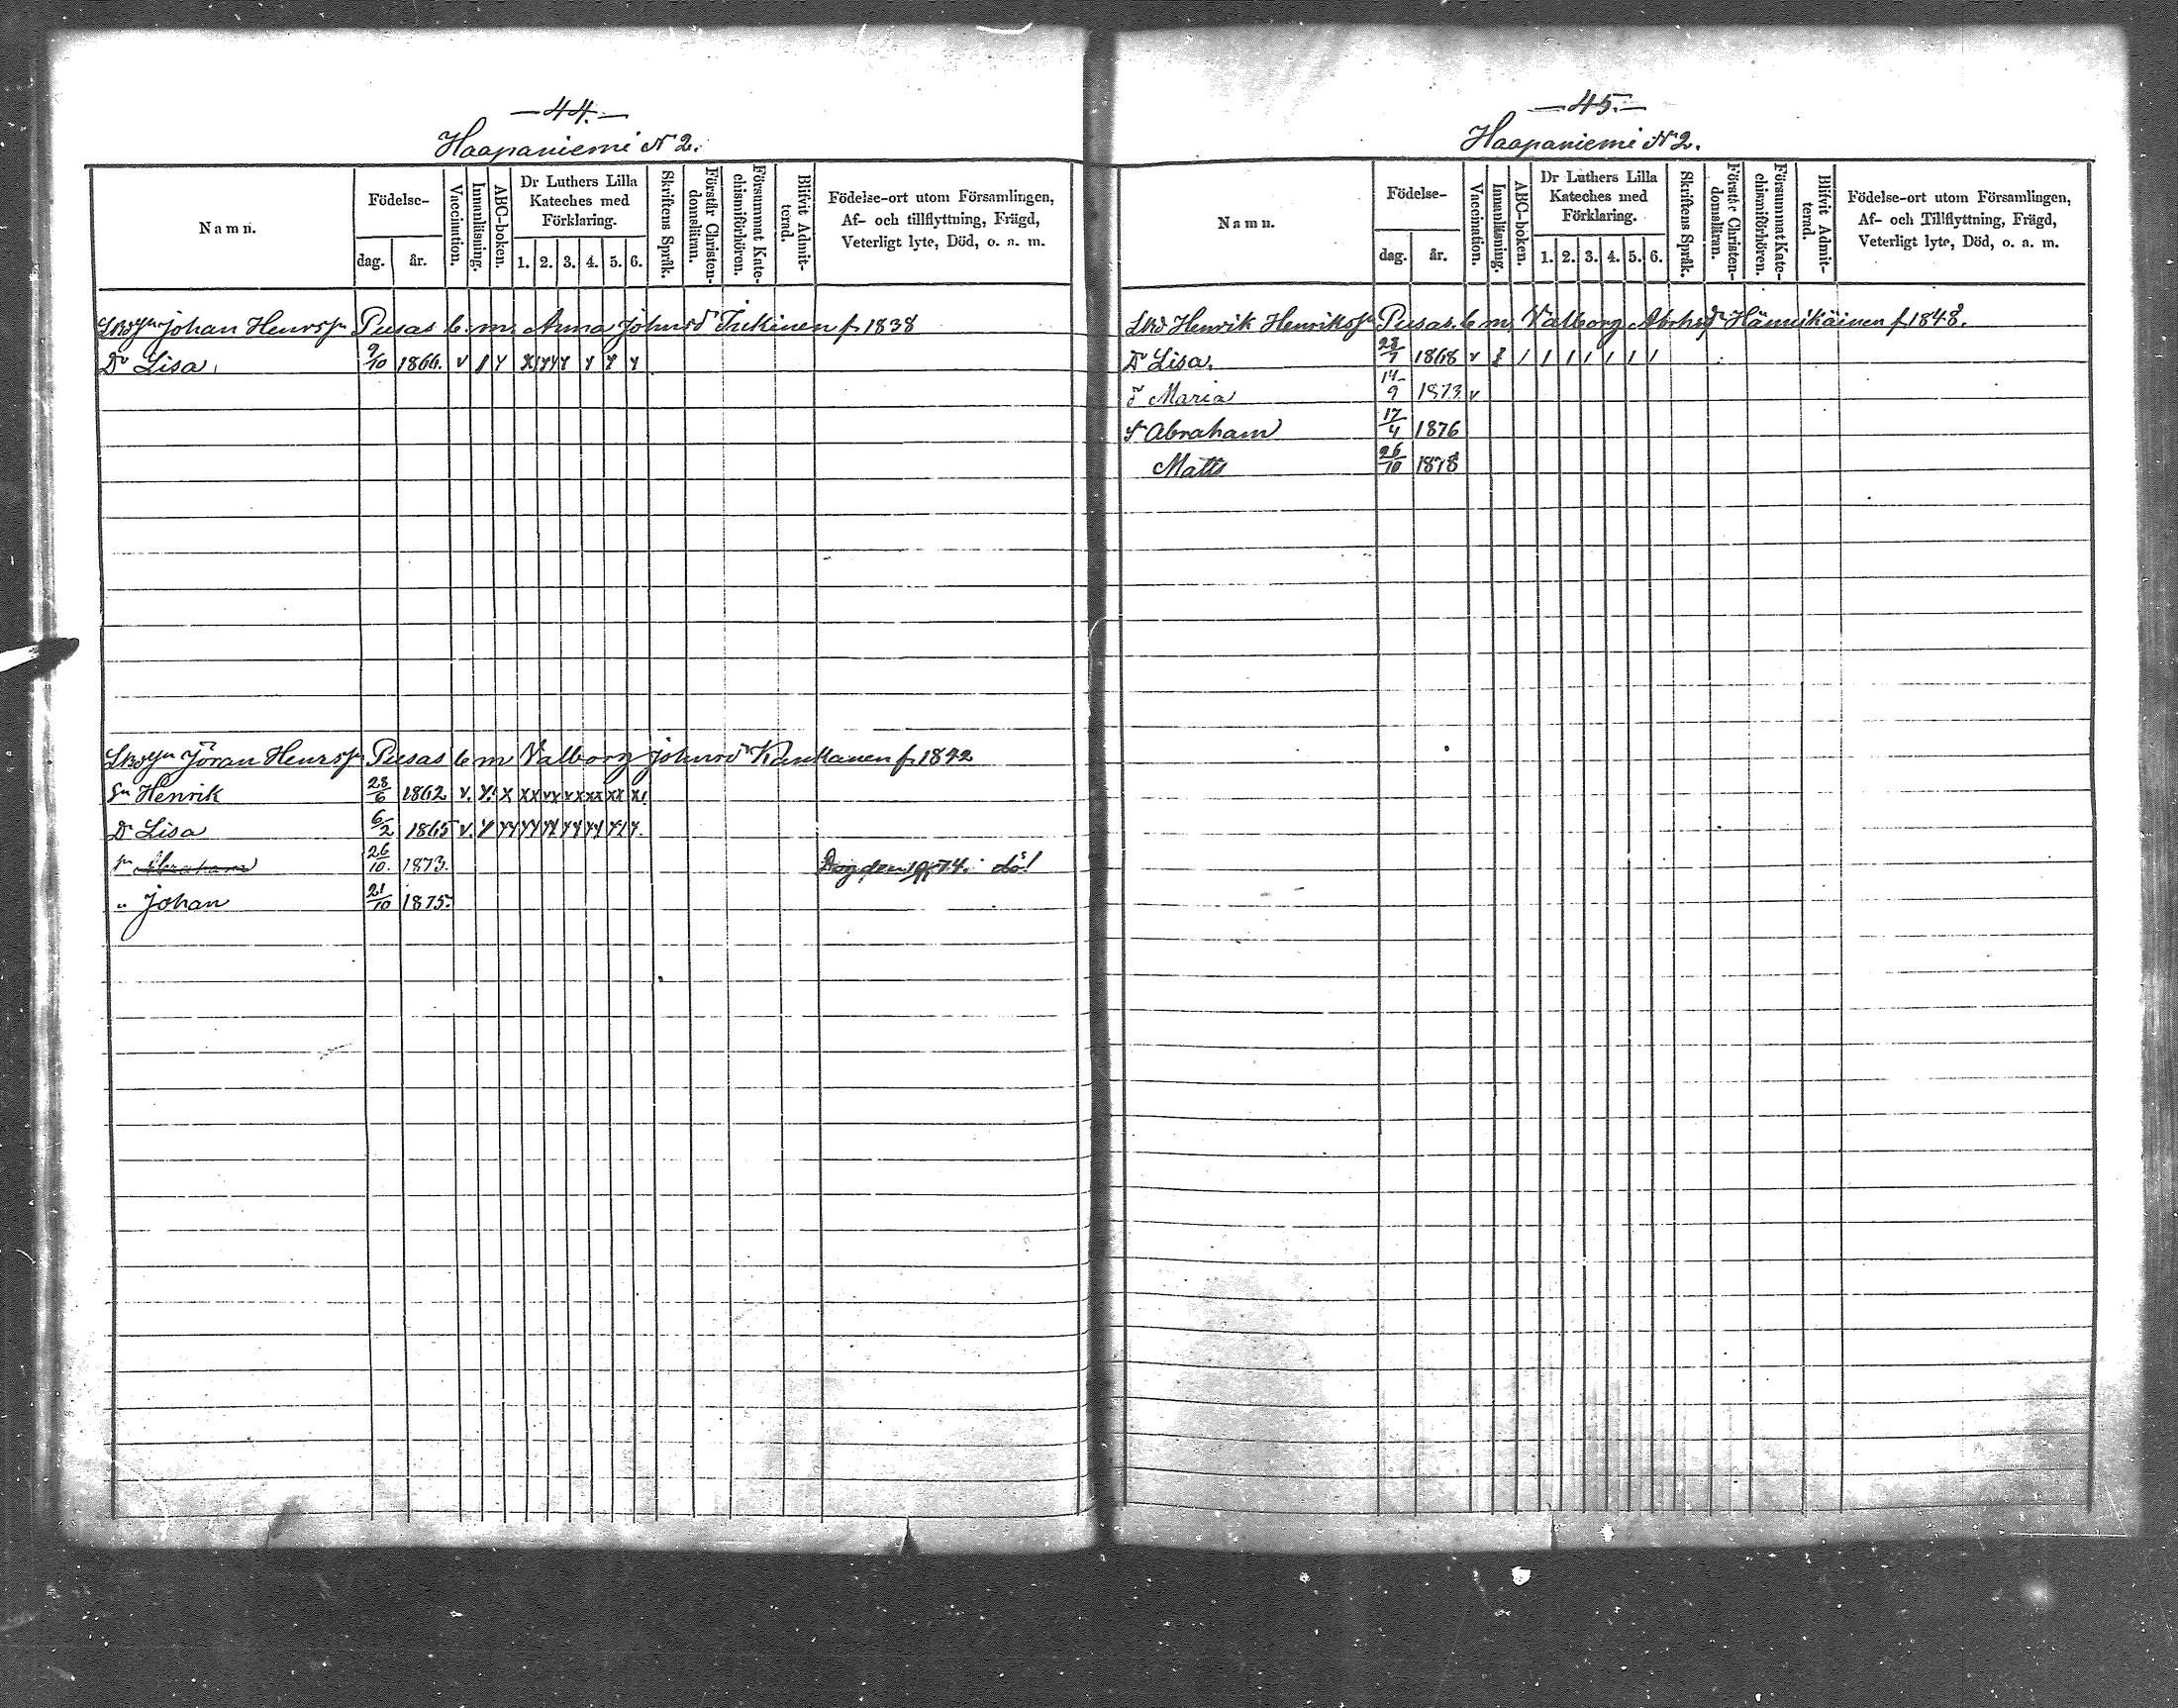 —44.—
Haapaniemi N 2.
Namn.
Födelse-
dag.
år.
Vaccination.
Innanläsning.
ABC-boken.
Dr Luthers Lilla
Kateches med
Förklaring.
1. 2. 3. 4. 5. 6.
Skriftens Språk.
Förstår Christen-
domsläran.
Försummat Kate-
chismiförhören.
Blifvit Admit-
terad.
Födelse-ort utom Församlingen,
Af- och tillflyttning, Frägd,
Veterligt lyte, Död, o. a. m.
Johan Henrsn Pusas b. m. Anna Johnsd Tukinen f. 1838
Dr Lisa 9/10 1866. v
Jöran Henrsn Pusas b m Valborg Johnsd Kaukanen f. 1842
Sn Henrik 28/6 1862 v.
Dr Lisa 6/2 1865 v.
Abraham 26/10. 1873. dö!
" Johan 21/10 1875.
—45.—
Haapaniemi N 2.
Namn.
Födelse-
dag.
år.
Vaccination.
Innanläsning.
ABC-boken.
Dr Luthers Lilla
Kateches med
Förklaring.
1. 2. 3. 4. 5. 6.
Skriftens Språk.
Förstår Christen-
domsläran.
Försummat Kate-
chismiförhören.
Blifvit Admit-
terad.
Födelse-ort utom Församlingen,
Af- och Tillflyttning, Frägd,
Veterligt lyte, Död, o. a. m.
Henrik Henriksn Pusas. b m. Valborg Abrhsdr Hännikäinen f. 1848.
Dr Lisa. 28/7 1868 v
Maria 14/9 1873 v
S Abraham 17/4 1876
Matts 26/10 1878